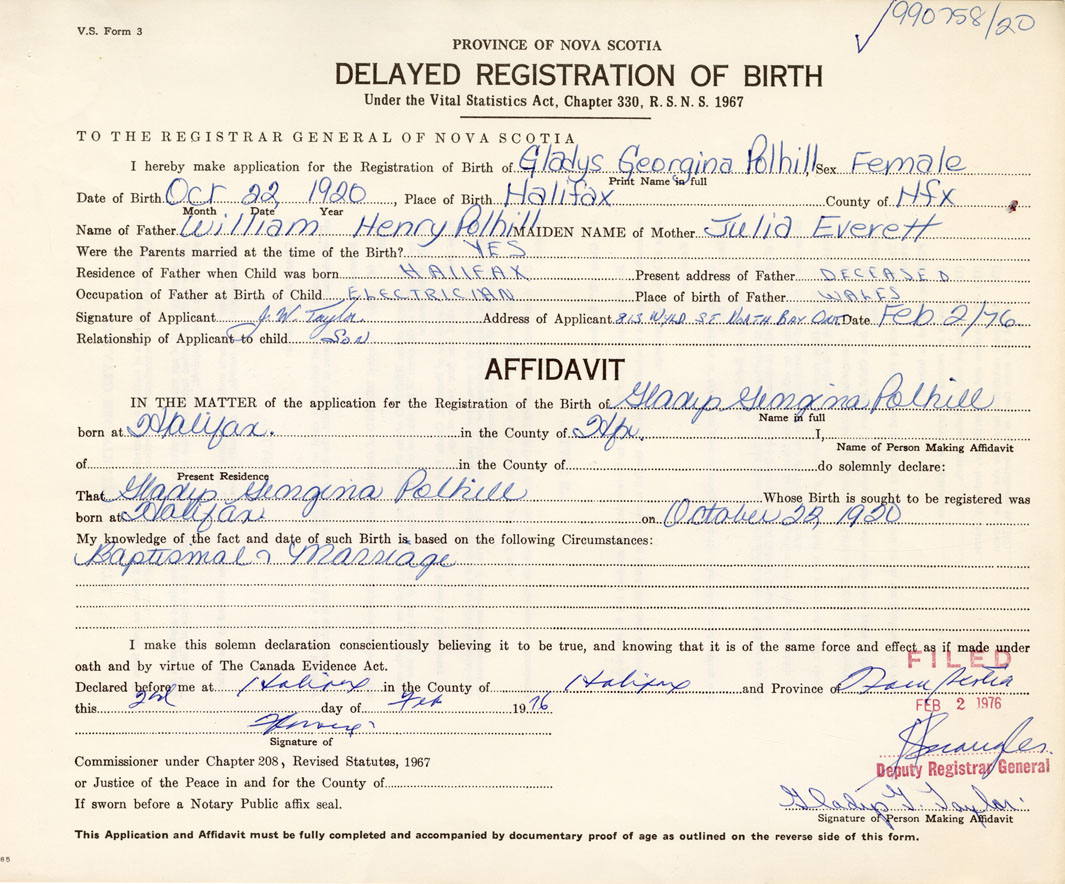 V.S. Form 3
990758/20
PROVINCE OF NOVA SCOTIA
DELAYED REGISTRATION OF BIRTH
Under the Vital Statistics Act, Chapter 330, R.S.N.S. 1967
TO THE REGISTRAR GENERAL OF NOVA SCOTIA
I hereby make application for the Registration of Birth of Gladys Georgina Polhill, Sex Female
Print Name in full
Date of Birth Oct 22, 1920, Place of Birth Halifax County of Hfx
Month Date Year
Name of Father William Henry Polhill MAIDEN NAME of Mother Julia Everett
Were the Parents married at the time of the Birth? YES
Residence of Father when Child was born HALIFAX Present address of Father DECEASED
Occupation of Father at Birth of Child ELECTRICIAN Place of birth of Father WALES
Signature of Applicant J. W. Taylor Address of Applicant 813 WYLD ST NORTH BAY ONT Date Feb 2/76
Relationship of Applicant to child Son
AFFIDAVIT
IN THE MATTER of the application for the Registration of the Birth of Gladys Georgina Polhill
Name in full
born at Halifax. in the County of Hfx. I,
Name of Person Making Affidavit
of in the County of do solemnly declare:
Present Residence
That Gladys Georgina Polhill Whose Birth is sought to be registered was
born at Halifax on October 22, 1920
My knowledge of the fact and date of such Birth is based on the following Circumstances:
Baptismal & Marriage
I make this solemn declaration conscientiously believing it to be true, and knowing that it is of the same force and effect as if made under
oath and by virtue of The Canada Evidence Act.
FILED
Declared before me at Halifax in the County of Halifax and Province of Nova Scotia
this 2nd day of Feb 1976
FEB 2 1976
Signature of
Commissioner under Chapter 208, Revised Statutes, 1967
Deputy Registrar General
or Justice of the Peace in and for the County of
Gladys G. Taylor
If sworn before a Notary Public affix seal.
Signature of Person Making Affidavit
This Application and Affidavit must be fully completed and accompanied by documentary proof of age as outlined on the reverse side of this form.
65